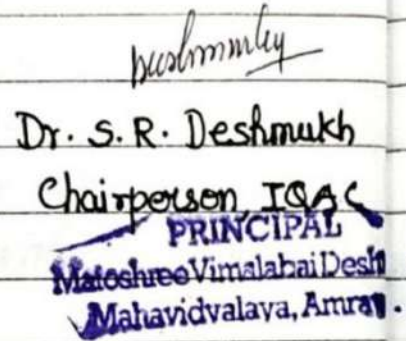 Dr. S. R. Deshmukh
Chairperson IQAC
PRINCIPAL
Matoshree Vimalabai Desh
Mahavidyalaya, Amrav.